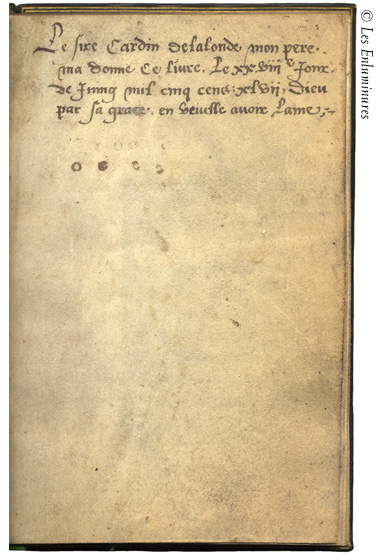 Le sire Cardin Delalonde mon pere.
ma donne ce livre. Le xxviii e Jour
de Juing mil cinq cens xlvii, dieu
par sa grace en veuille avoir lame
© Les Enluminures